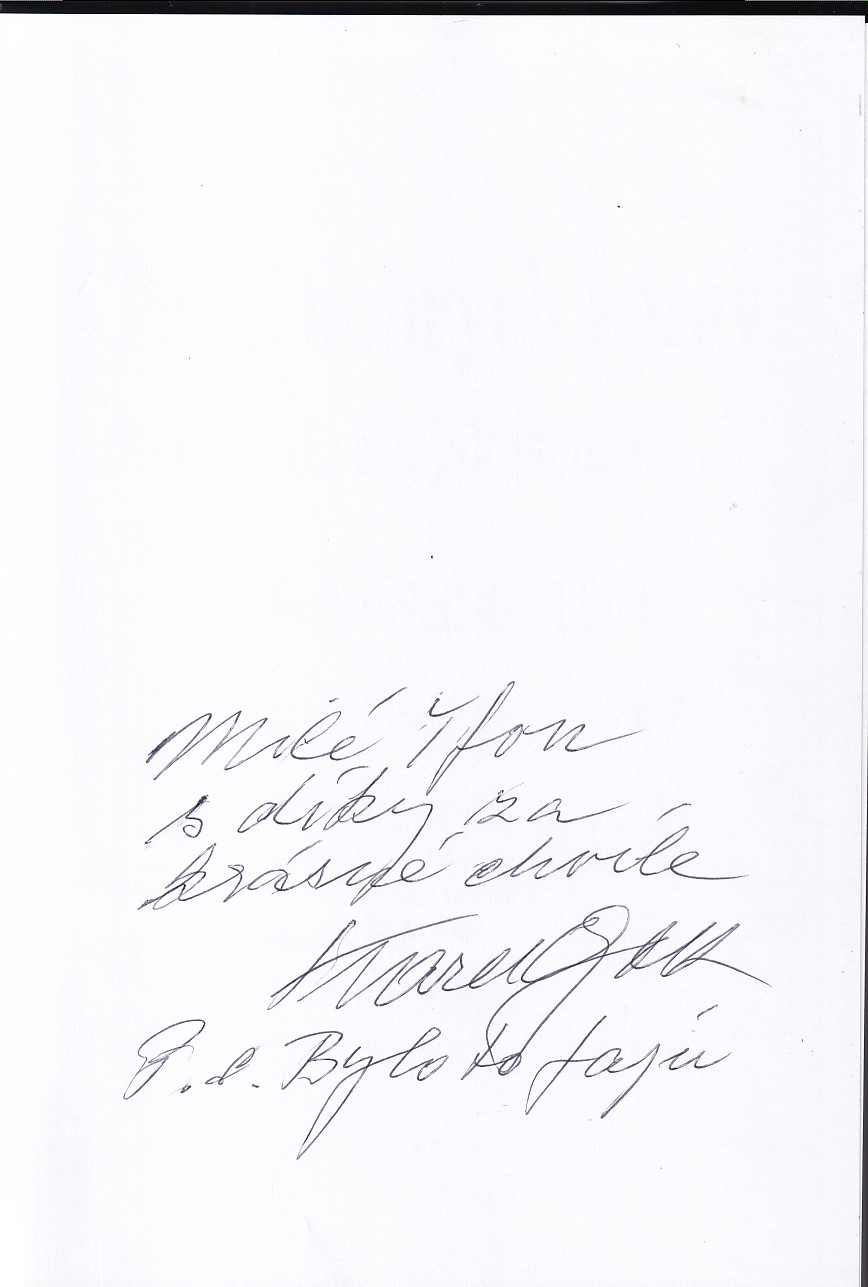 Milé Yfon
s díky za
krásné chvíle
Marek
P.s. Bylo to fajú